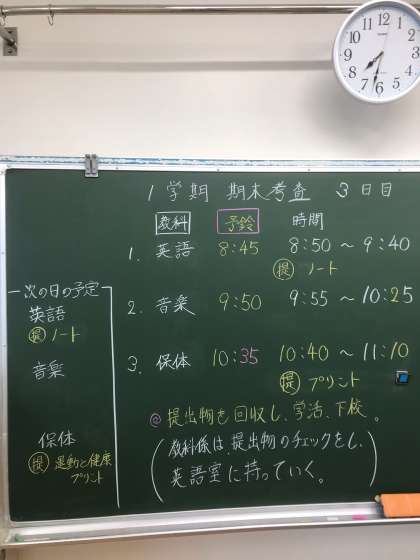 12
1
2
3
4
5
6
7
8
9
10
11
1学期 期末考査 3日目
教科 予鈴 時間
1. 英語 8:45 8:50 ~ 9:40
提 ノート
2. 音楽 9:50 9:55 ~ 10:25
3. 保体 10:35 10:40 ~ 11:10
提 プリント
◎ 提出物を回収し、学活、下校。
(教科係は、提出物のチェックをし、
英語室に持っていく。)
次の日の予定
英語
提 ノート
音楽
保体
提 運動と健康
プリント